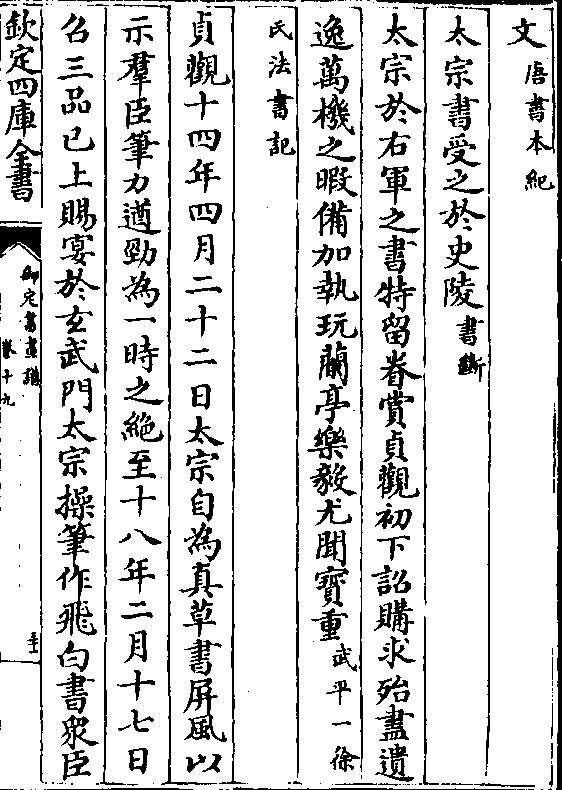 文唐書本紀
太宗書受之於史陵書斷
太宗於右軍之書特留眷賞貞觀初下詔購求殆盡遺
逸萬機之暇備加執玩蘭亭樂毅尤聞寶重武平一徐
氏法書記
貞觀十四年四月二十二日太宗自為真草書屏風以
示羣臣筆力遒勁為一時之絶至十八年二月十七日
召三品已上賜宴於玄武門太宗操筆作飛白書衆臣
欽定四庫全書
御定書畫譜
卷十九